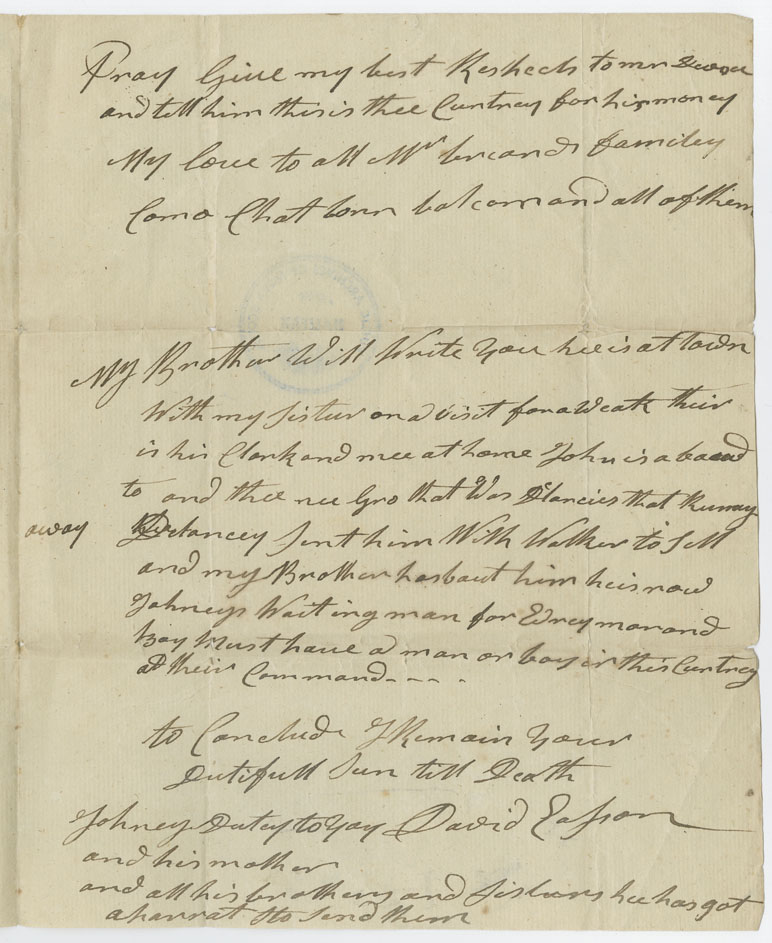 Pray Give my best Respects to mr
and tell him this is thee Cuntrey for his money
My love to all Mrs familey
Come Chat tonn balcom and all of them
My Brother Will Write You hee is at town
With my sister on a visit for a Weak their
is his Clark and mee at home John is a
to and thee nee Gro that Was Delancies that Runaway
away Delancey sent him With Walker to sell
and my Brother has bout him he is now
Johneys Waiting man for Evrey man and
boy Must have a man or boy in this Cuntrey
at their Command - - - .
to Conclude I Remain Your
Dutifull Sun till Death
Johney Dutey to You David Easson
and his mother
and all his brothers and sisters hee has got
a harrat to send them